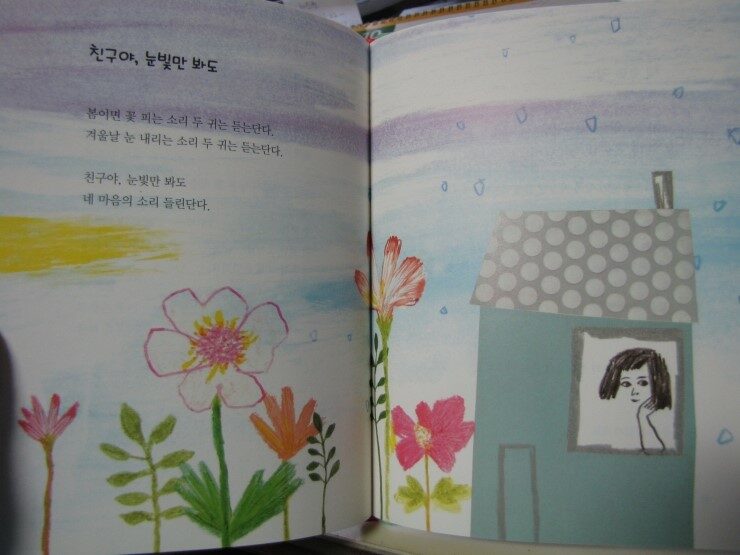 친구야, 눈빛만 봐도
봄이면 꽃 피는 소리 두 귀는 듣는단다.
겨울날 눈 내리는 소리 두 귀는 듣는단다.
친구야, 눈빛만 봐도
네 마음의 소리 들린단다.